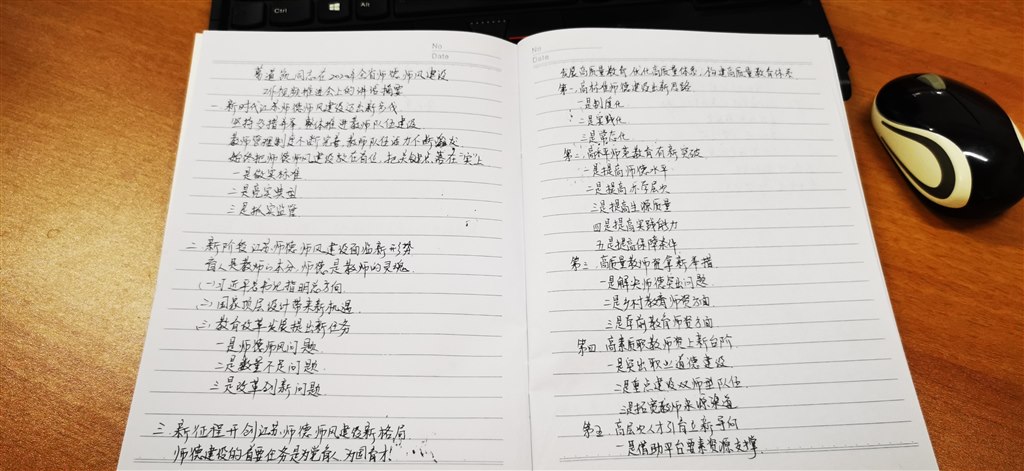 Ctrl
Alt
No
Date
葛道凯同志在2020年全省师德师风建设
工作视频推进会上的讲话摘要
一、新时代江苏师德师风建设迈出新步伐
坚持多措并举,整体推进教师队伍建设
教师管理制度不断完善,教师队伍活力不断激发
始终把师德师风建设放在首位,把关键点落在"实"上
一是做实标准
二是竞实典型
三是抓实监管
二、新阶段江苏师德师风建设面临新形势
育人是教师的本分,师德是教师的灵魂
(一)习近平总书记指明总方向.
(二)国家顶层设计带来新机遇.
(三)教育改革发展提出新任务
一是师德师风问题.
二是数量不足问题.
三是改革创新问题.
三、新征程开创江苏师德师风建设新格局.
师德建设的首要任务是为党育人,为国育才!
No
Date
发展高质量教育,优化高质量体系,构建高质量教育体系
第一,高标准师德建设出新思路
一是制度化
二是实践化
三是常态化
第二,高水平师范教育有新突破
一是提高师德水平
二是提高办学层次
三是提高生源质量
四是提高实践能力
五是提高保障条件
第三,高质量教师资拿新举措.
一是解决师德突出问题.
二是乡村教育师资方面.
三是学前教育师资方面.
第四,高素质职教师资上新台阶
一是突出职业道德建设
二是重点建设双师型队伍
三是拓宽教师来源渠道
第五,高层次人才引育立新导向
一是借助平台要素资源支撑